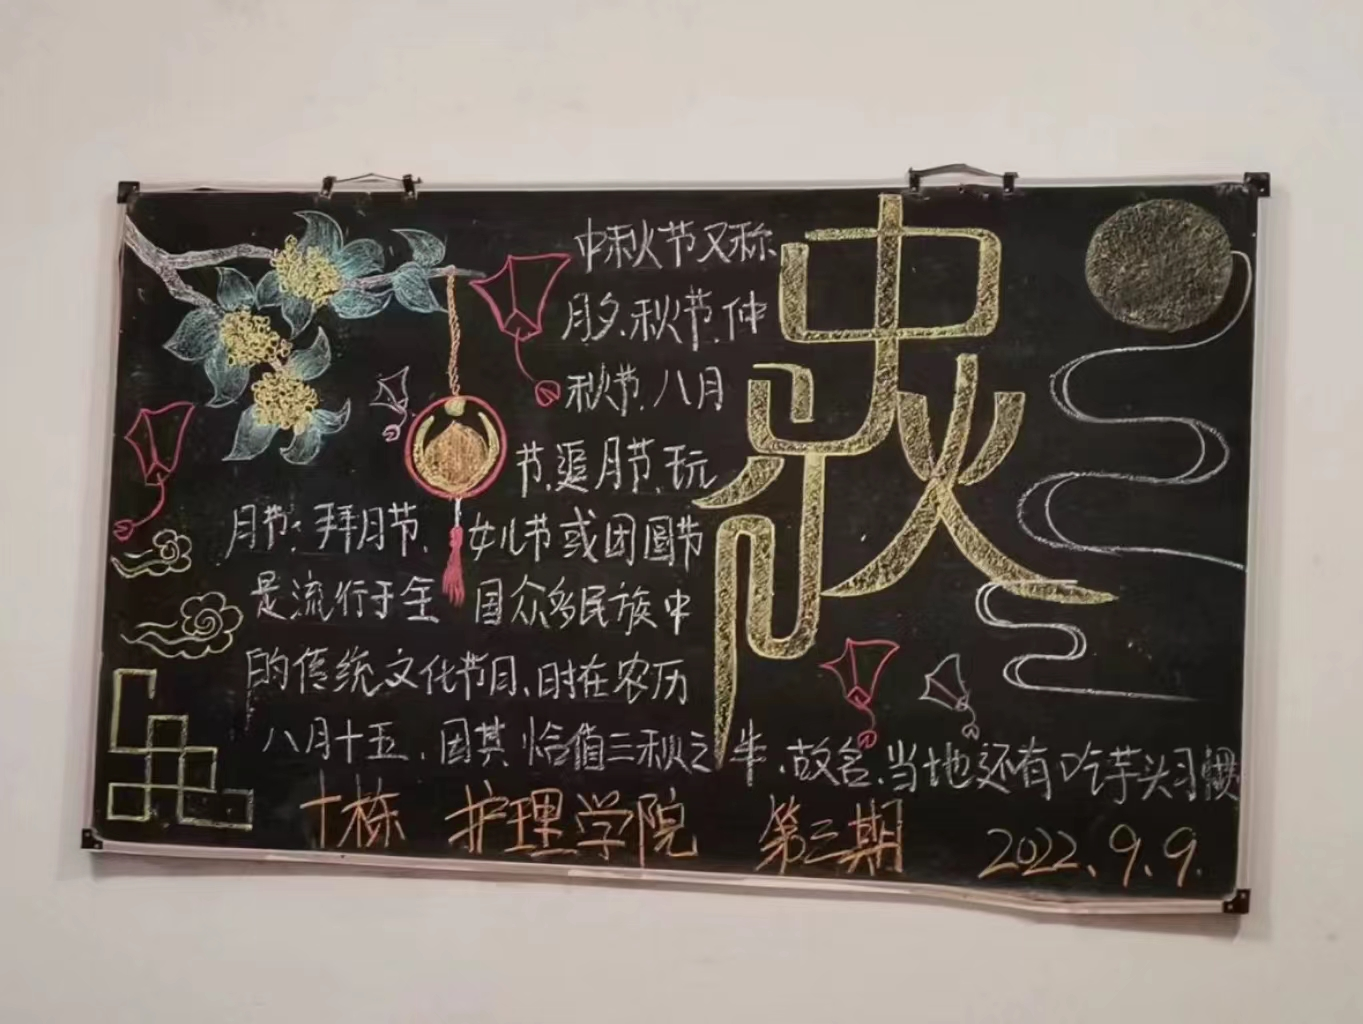 中秋
中秋节又称
月夕、秋节、仲
秋节、八月
节、追月节、玩
月节、拜月节、女儿节或团圆节
是流行于全国众多民族中
的传统文化节日、时在农历
八月十五、因其恰值三秋之半、故名、当地还有吃芋头习惯
十栋 护理学院 第三期 2022.9.9.